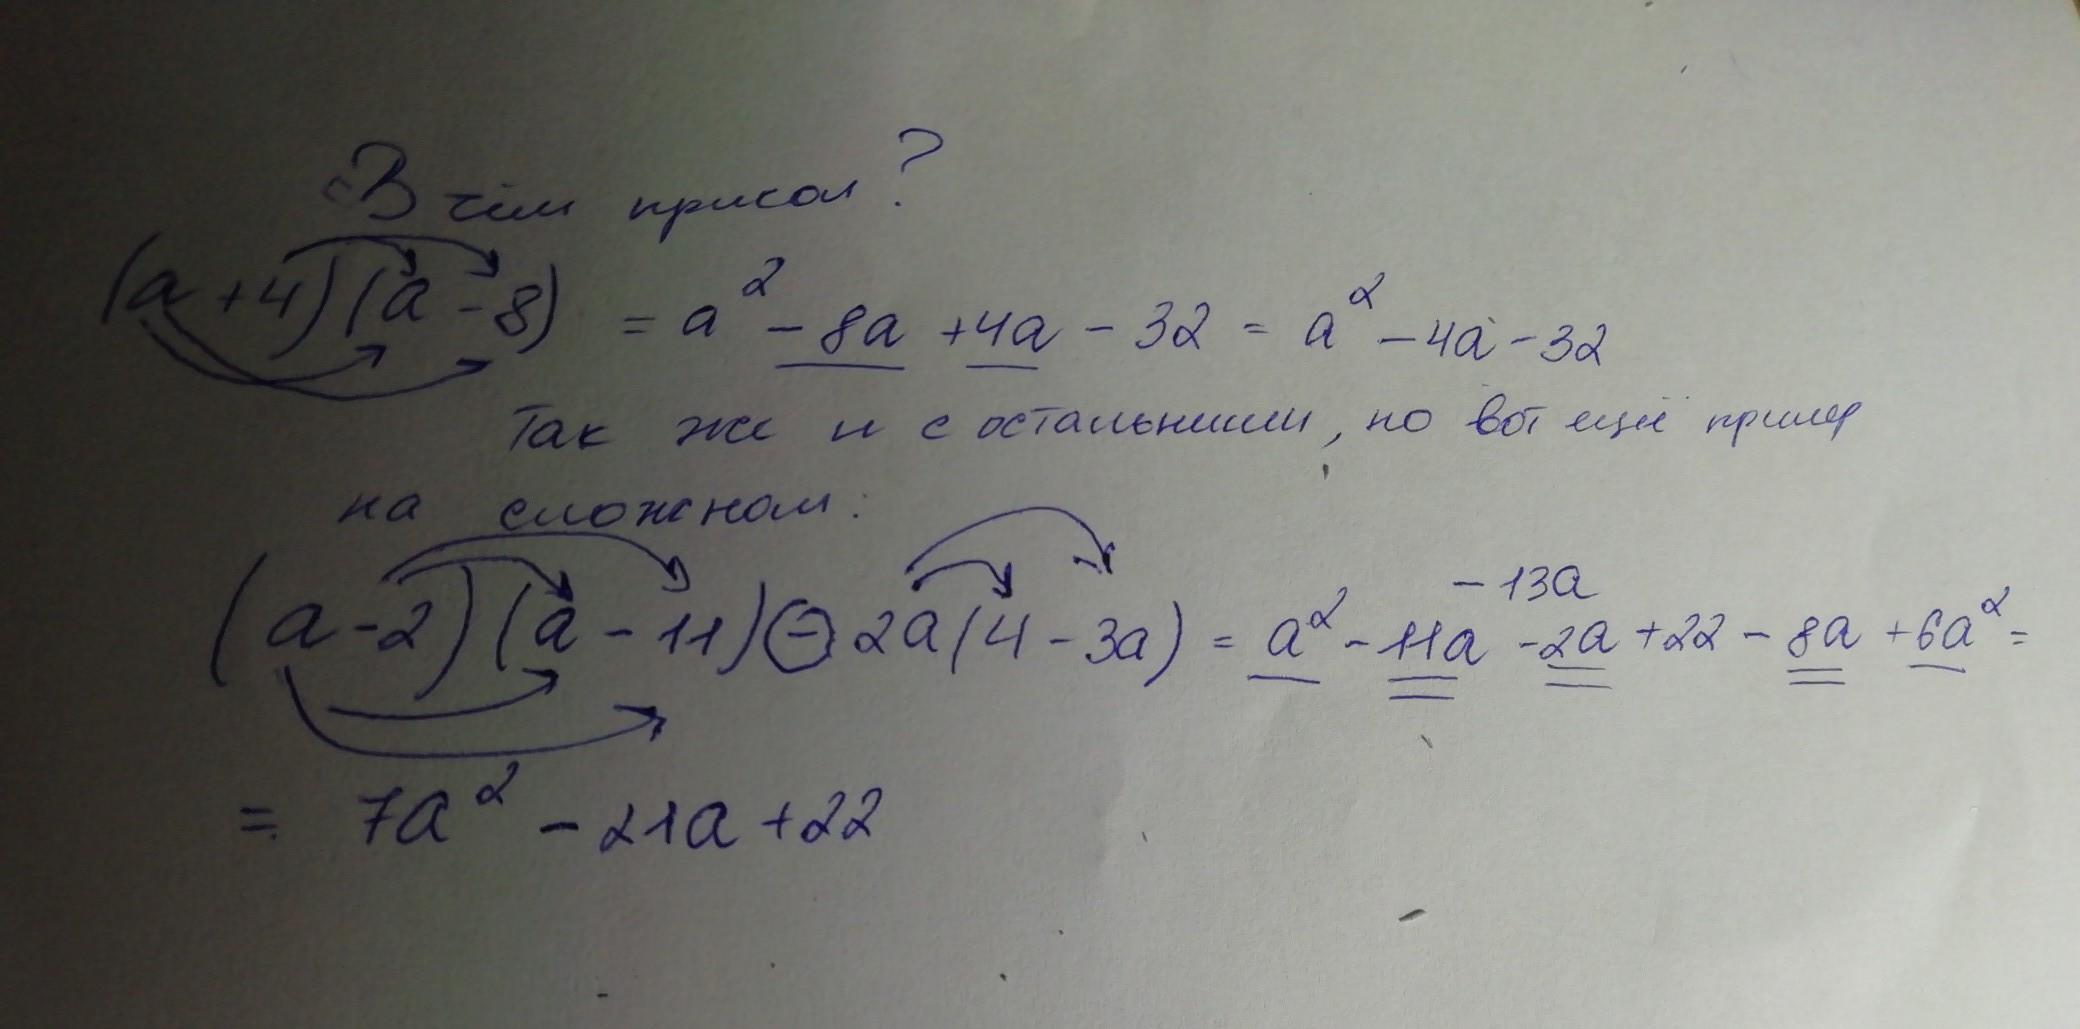 В чём прикол?
(a + 4)(a - 8) = a² - 8a + 4a - 32 = a² - 4a - 32
Так же и с остальными, но вот ещё пример
на сложном:
- 13a
(a - 2)(a - 11) - 2a(4 - 3a) = a² - 11a - 2a + 22 - 8a + 6a² =
= 7a² - 21a + 22